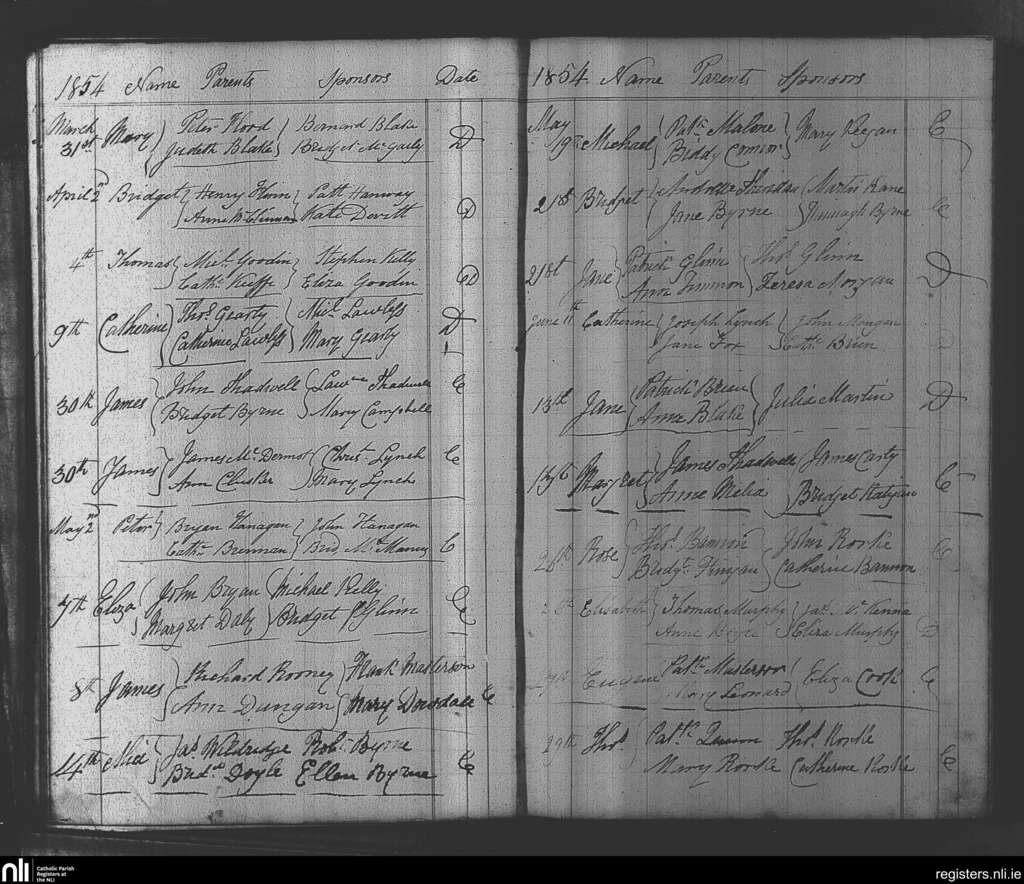 1854 Name Parents Sponsors Date
March Mary Peter Bernard Blake
31st Judeth Blake Bridget McGarty D
April 2nd Bridget Henry Path Hanway
Anne Kate Devitt D
4th Thomas Mich. Goodin Stephen Kelly
Cath. Keeffe Eliza Goodin CD
9th Catherine Thos. Gearty Mich. Lawless D
Catherine Lawless Mary Gearty
30th James John Shadwell Lawce Shadwell C
Bridget Byrne Mary Campbell
30th James James McDermot Christ. Lynch C
Ann Clusker Mary Lynch
May 2nd Peter Bryan Flanagan John Flanagan
Cathn. Brennan Brid Mc C
7th Eliza John Bryan Michael Kelly C
Margret Daly Bridget Glinn
8th James Richard Rooney Frank Masterson
Ann Dungan Mary Dowdall C
14th Jas. Wildridge Robt. Byrne
Bridt. Doyle Ellen Byrne C
1854 Name Parents Sponsors
May Patk. Malone Mary Keegan C
19th Michael Biddy Connor
21st Bridget Andrew Martin Kane
Jane Byrne Byrne C
21st Jane Patrick Glinn Thos. Glinn D
Ann Timmon Teresa Morgan
June 11th Catherine Joseph Lynch John Mongan
Jane Fox Cath. Brien
13th Jane Patrick Brien Julia Martin D
Anne Blake
Margret James Shadwell James Carty C
Anne Melia Bridget
Rose Thos. Bannon John Rorke C
Bridgt. Finyan Catherine Bannon
Elizabeth Thomas Murphy Jas. McKenna
Anne Boyle Eliza Murphy D
Eugene Patk. Masterson Eliza Cook C
Mary Leonard
29th Thos. Patk. Thos. Rorke
Mary Rorke Catherine Rorke C
nli Catholic Parish
Registers at
the NLI
registers.nli.ie